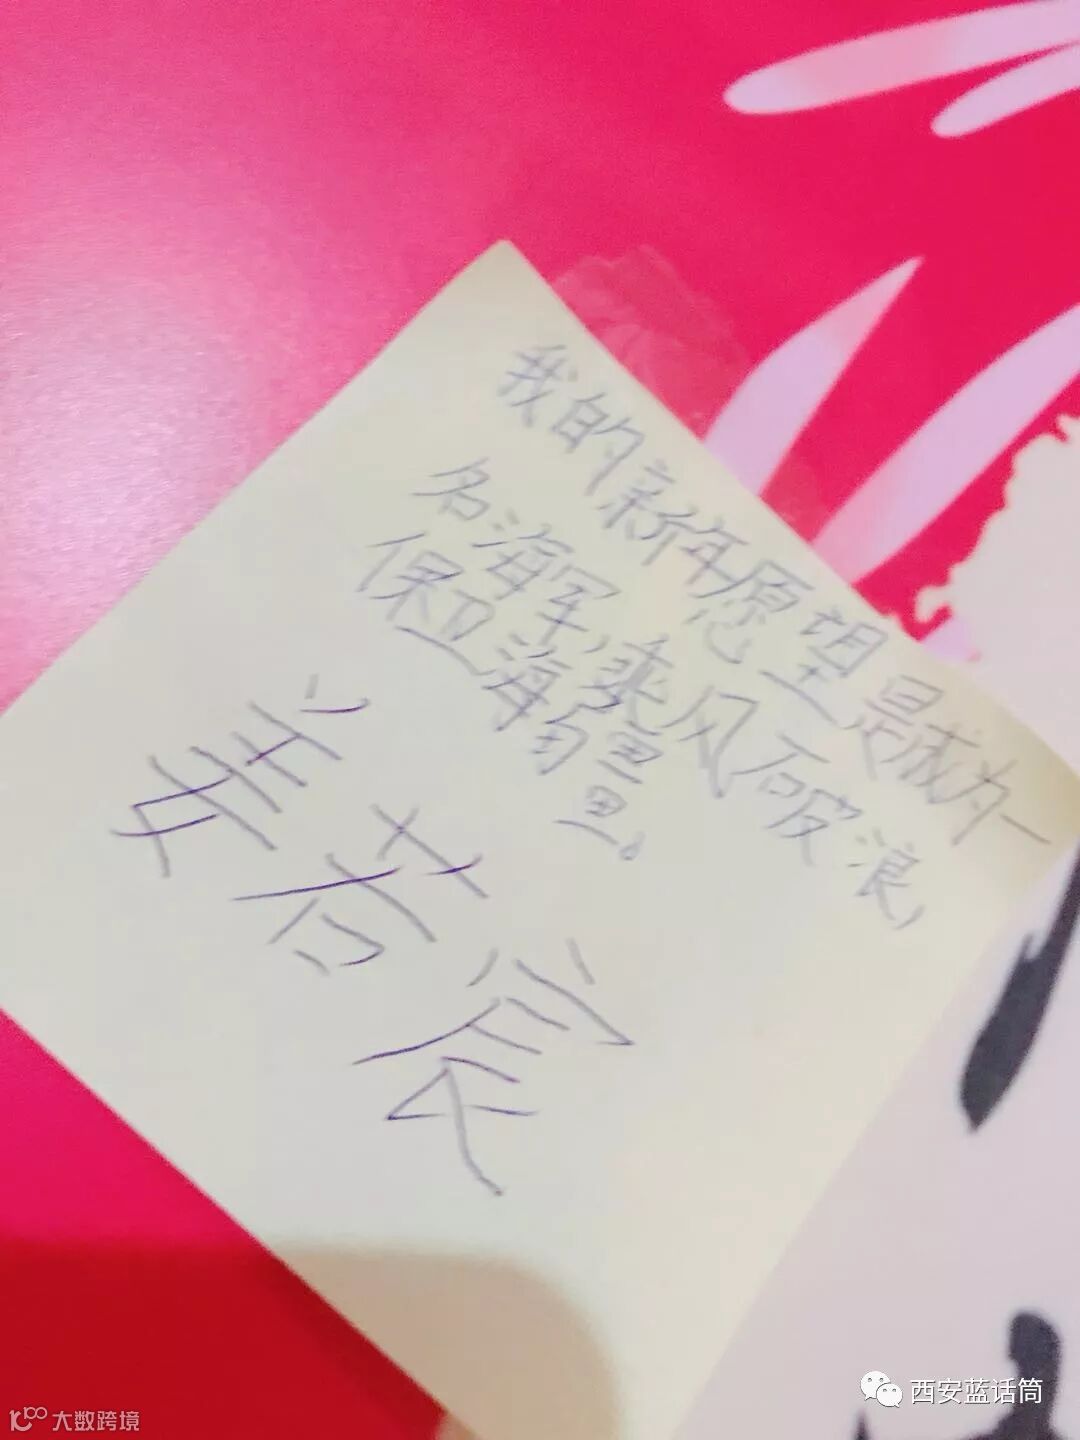 我的新年愿望是成为一
名海军,乘风破浪,
保卫海疆。
姜若宸
西安蓝话筒
大数跨境